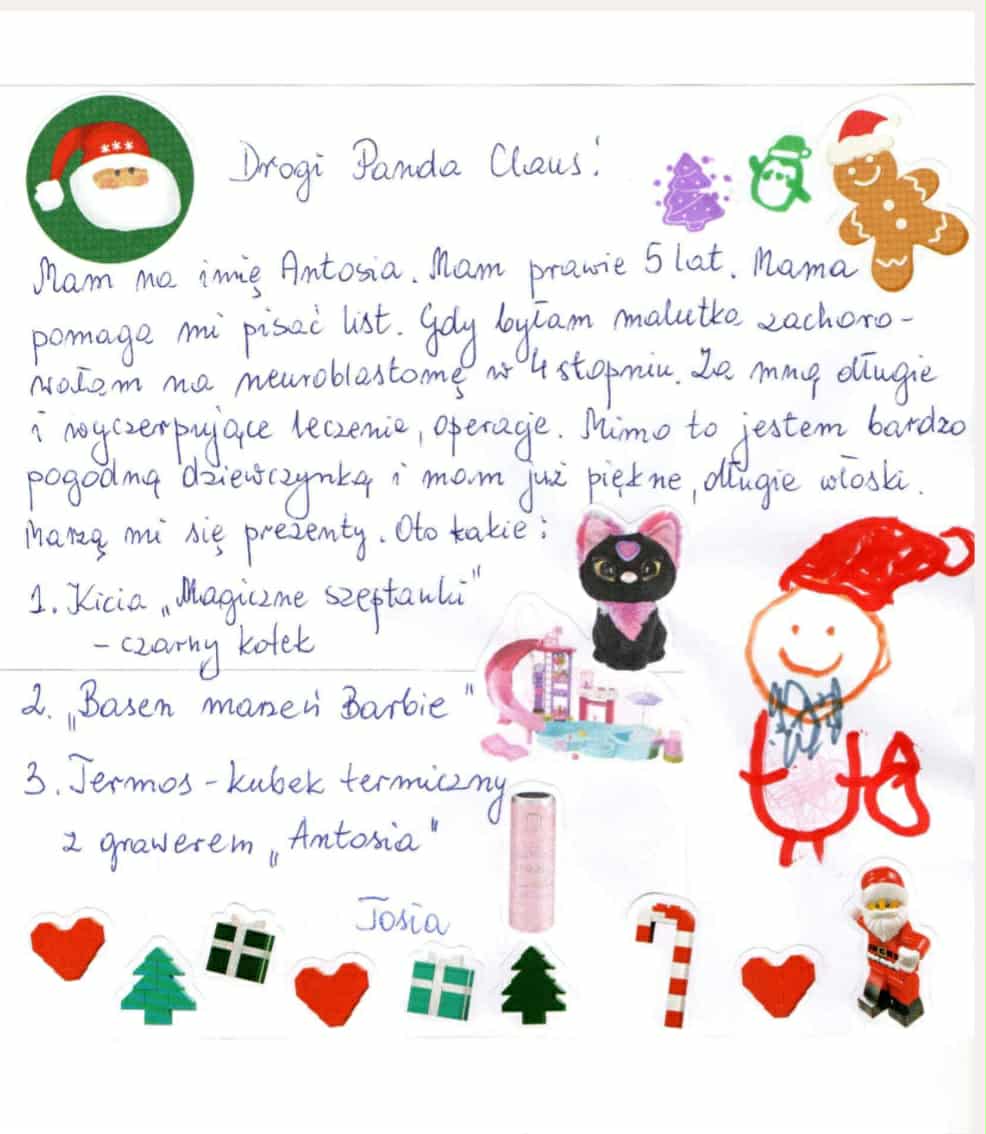 Drogi Panda Claus!
Mam na imię Antosia. Mam prawie 5 lat. Mama
pomaga mi pisać list. Gdy byłam malutka zachoro-
wałam na neuroblastomę w 4 stopniu. Za mną długie
i wyczerpujące leczenie, operacje. Mimo to jestem bardzo
pogodną dziewczynką i mam już piękne, długie włoski.
Marzą mi się prezenty. Oto takie:
1. Kicia „Magiczne szeptanki"
- czarny kotek
2. „Basen marzeń Barbie"
3. Termos - kubek termiczny
z grawerem „Antosia"
Tosia